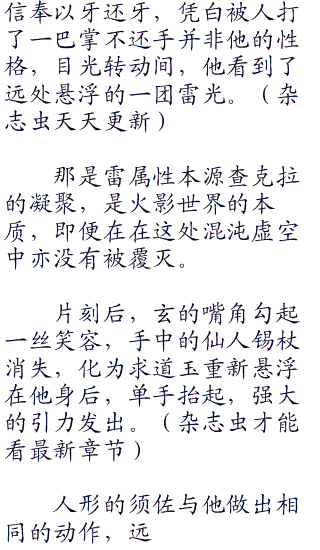 信奉以牙还牙，凭白被人打
了一巴掌不还手并非他的性
格，目光转动间，他看到了
远处悬浮的一团雷光。（杂
志虫天天更新）
那是雷属性本源查克拉
的凝聚，是火影世界的本
质，即便在在这处混沌虚空
中亦没有被覆灭。
片刻后，玄的嘴角勾起
一丝笑容，手中的仙人锡杖
消失，化为求道玉重新悬浮
在他身后，单手抬起，强大
的引力发出。（杂志虫才能
看最新章节）
人形的须佐与他做出相
同的动作，远